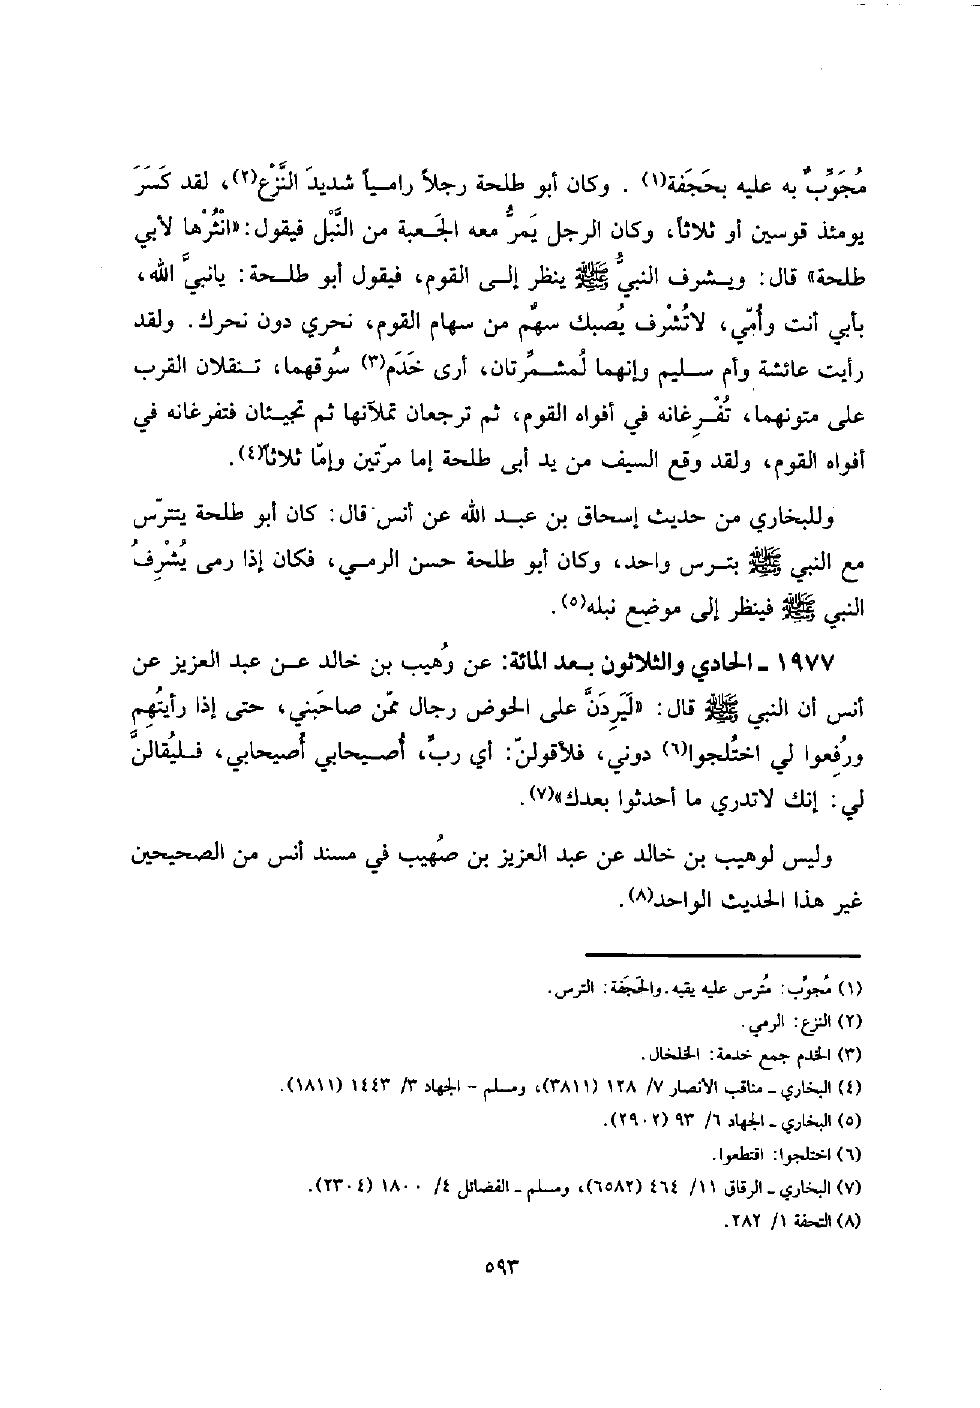 مُجَوِّبٌ به عليه بحَجَفة(١) . وكان أبو طلحة رجلاً رامـياً شديدَ النَّزْع(٢)، لقد كَسَرَ
يومئذ قوسين أو ثلاثاً، وكان الرجل يَمرُّ معه الجَـعبة من النَّبْل فيقول: «انْثُرْها لأبي
طلحة» قال: ويـشرف النبيُّ ﷺ ينظر إلـى القوم، فيقول أبو طلـحة: يانبيَّ الله،
بأبي أنت وأُمّي، لاتُشْرف يُصبك سهمٌ من سهام القوم، نحري دون نحرك. ولقد
رأيت عائشة وأم سـليم وإنهما لُمشـمِّرتان، أرى خَدَم(٣) سوُقهما، تـنقلان القرب
على متونهما، تُفْـرِغانه في أفواه القوم، ثم ترجعان تملآنها ثم تجيـئان فتفرغانه في
أفواه القوم، ولقد وقع السيف من يد أبى طلحة إما مرّتين وإمّا ثلاثاً(٤).
وللبخاري من حديث إسحاق بن عبـد الله عن أنس قال: كان أبو طلحة يتترّس
مع النبي ﷺ بتـرس واحد، وكان أبو طلحة حسن الرمـي، فكان إذا رمى يُشْرِفُ
النبي ﷺ فينظر إلى موضع نبله(٥).
١٩٧٧ ـ الحادي والثلاثون بـعد المائة: عن وُهيب بن خالد عـن عبد العزيز عن
أنس أن النبي ﷺ قال: «لَيَرِدَنَّ على الحوض رجال ممّن صاحبَني، حتى إذا رأيتُهم
ورُفِعوا لي اختُلجوا(٦) دوني، فلأقولنّ: أي ربّ، أُصـيحابي أُصيحابي، فـليُقالنَّ
لي: إنك لاتدري ما أحدثوا بعدك»(٧).
وليس لوهيب بن خالد عن عبد العزيز بن صُهيب في مسند أنس من الصحيحين
غير هذا الحديث الواحد(٨).
(١) مُجوِّب: مُترس عليه يقيه. والحَجَفة: الترس.
(٢) النزع: الرمي.
(٣) الخدم جمع خدمة: الخلخال.
(٤) البخاري ـ مناقب الأنصار ٧/ ١٢٨ (٣٨١١)، ومسلم - الجهاد ٣/ ١٤٤٣ (١٨١١).
(٥) البخاري ـ الجهاد ٦/ ٩٣ (٢٩٠٢).
(٦) اختلجوا: اقتطعوا.
(٧) البخاري ـ الرقاق ١١/ ٤٦٤ (٦٥٨٢)، ومسـلم ـ الفضائل ٤/ ١٨٠٠ (٢٣٠٤).
(٨) التحفة ١/ ٢٨٢.
٥٩٣